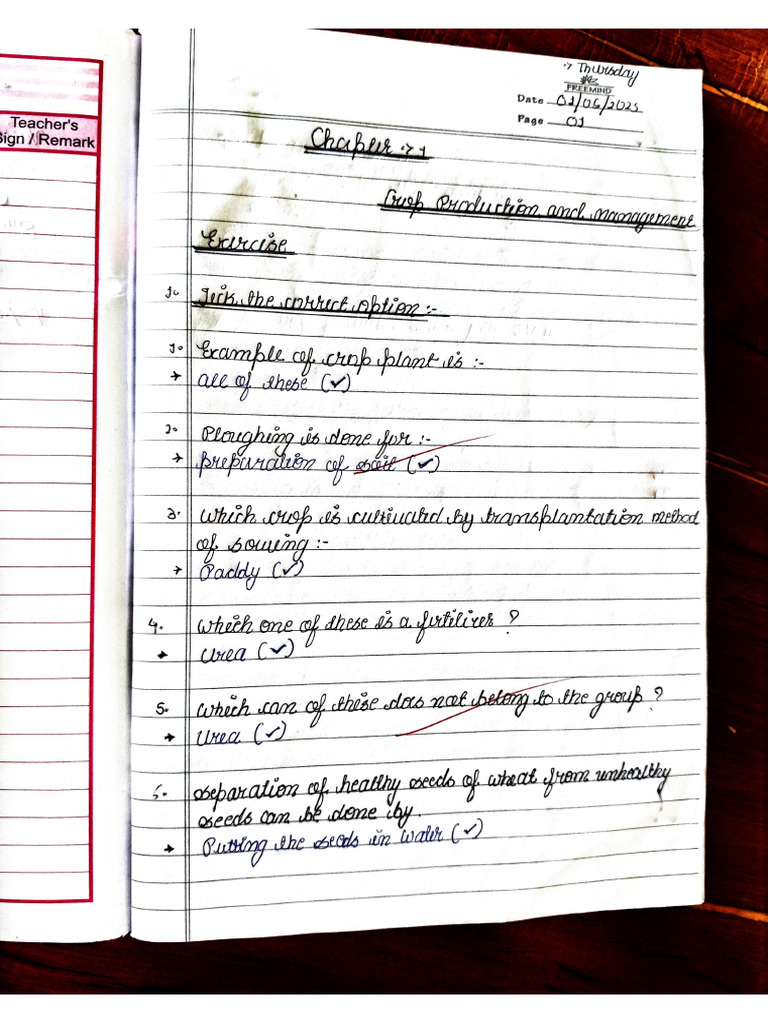 Teacher's
Sign / Remark
:→ Thursday
FREEMIND
Date 02/06/2025
Page 01
Chapter :→ 1
Crop Production and management
Exercise
1. Tick the correct option :-
1. Example of crop plant is :-
→ all of these (✓)
2. Ploughing is done for :-
→ preparation of soil (✓)
3. which crop is cultivated by transplantation method
of sowing :-
→ Paddy (✓)
4. which one of these is a fertilizer ?
→ Urea (✓)
5. which can of these does not belong to the group ?
→ Urea (✓)
6. separation of healthy seeds of wheat from unhealthy
seeds can be done by.
→ Putting the seeds in water (✓)